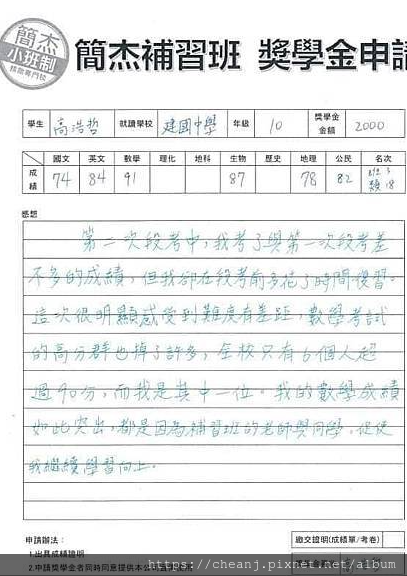 簡杰
小班制
簡杰補習班 獎學金申請
學生 高浩哲 就讀學校 建國中學 年級 10 獎學金金額 2000
國文 英文 數學 理化 地科 生物 歷史 地理 公民 名次
成績 74 84 91 87 78 82 班3 類18
感想
第二次段考中，我考了與第一次段考差
不多的成績，但我卻在段考前多花了時間復習。
這次很明顯感受到難度有差距，數學考試
的高分群也掉了許多，全校只有6個人超
過90分，而我是其中一位。我的數學成績
如此突出，都是因為補習班的老師與同學，促使
我繼續學習向上。
申請辦法：
繳交證明(成績單/考卷)
1.出具成績證明
2.申請獎學金者同時同意提供本
https://cheanj.pixnet.net/album